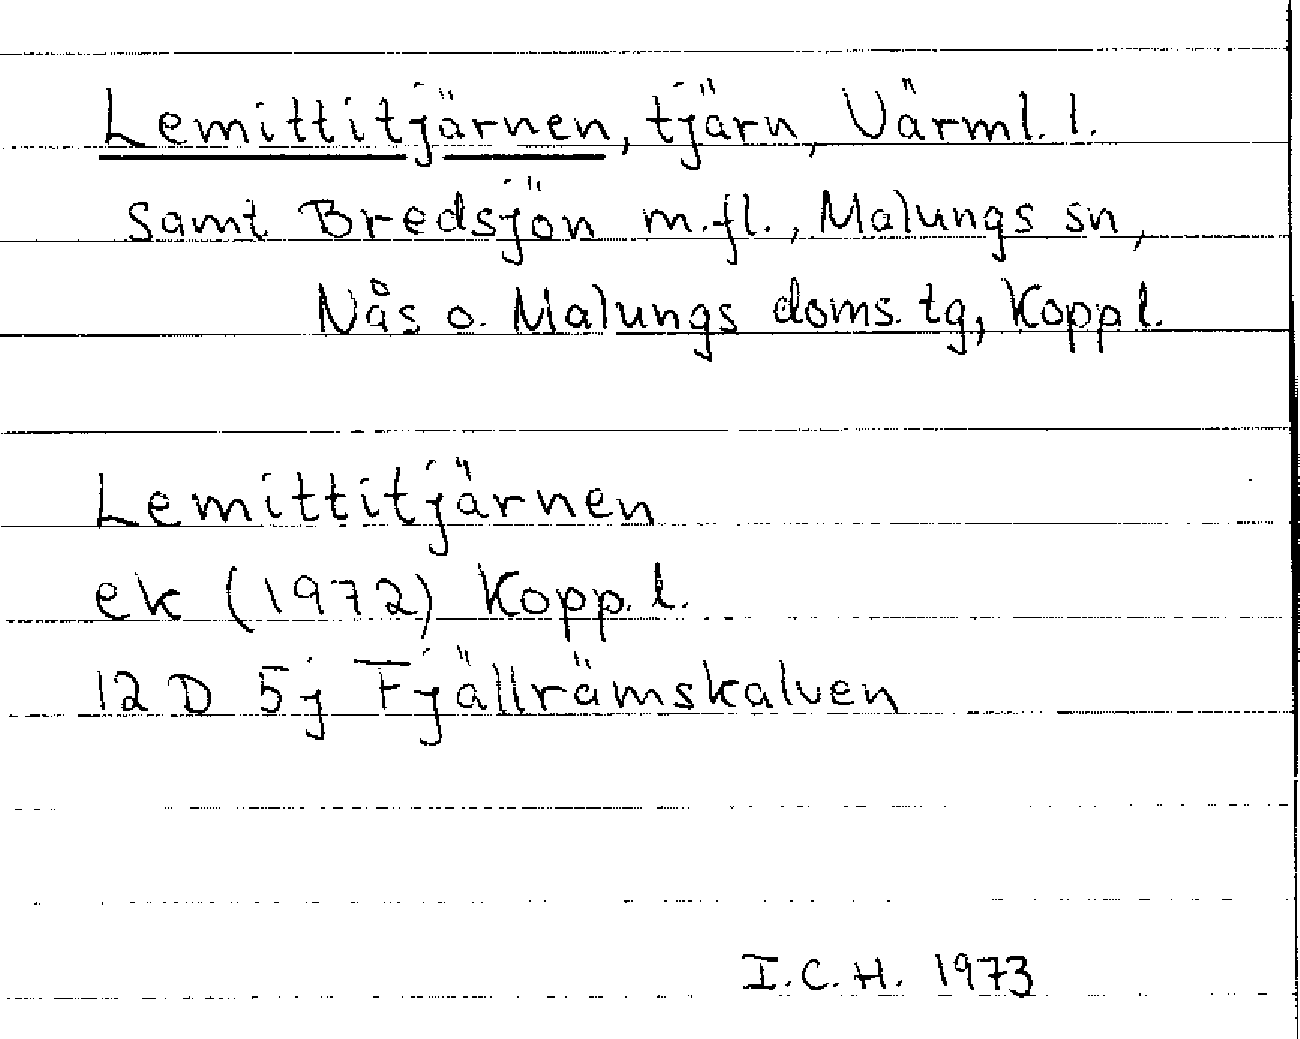 Lemittitjärnen, tjärn, Värml. l.
samt Bredsjön m.fl., Malungs sn,
Nås o. Malungs doms. tg, Kopp l.
Lemittitjärnen
ek (1972) Kopp. l.
12 D 5j Fjällrämskalven
I.C.H. 1973